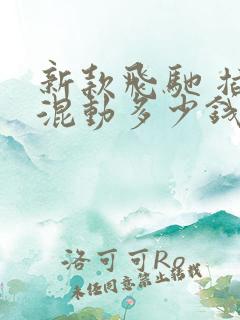 新款飛馳 插
混動多少錢
洛可可Ro
未经同意禁止转载